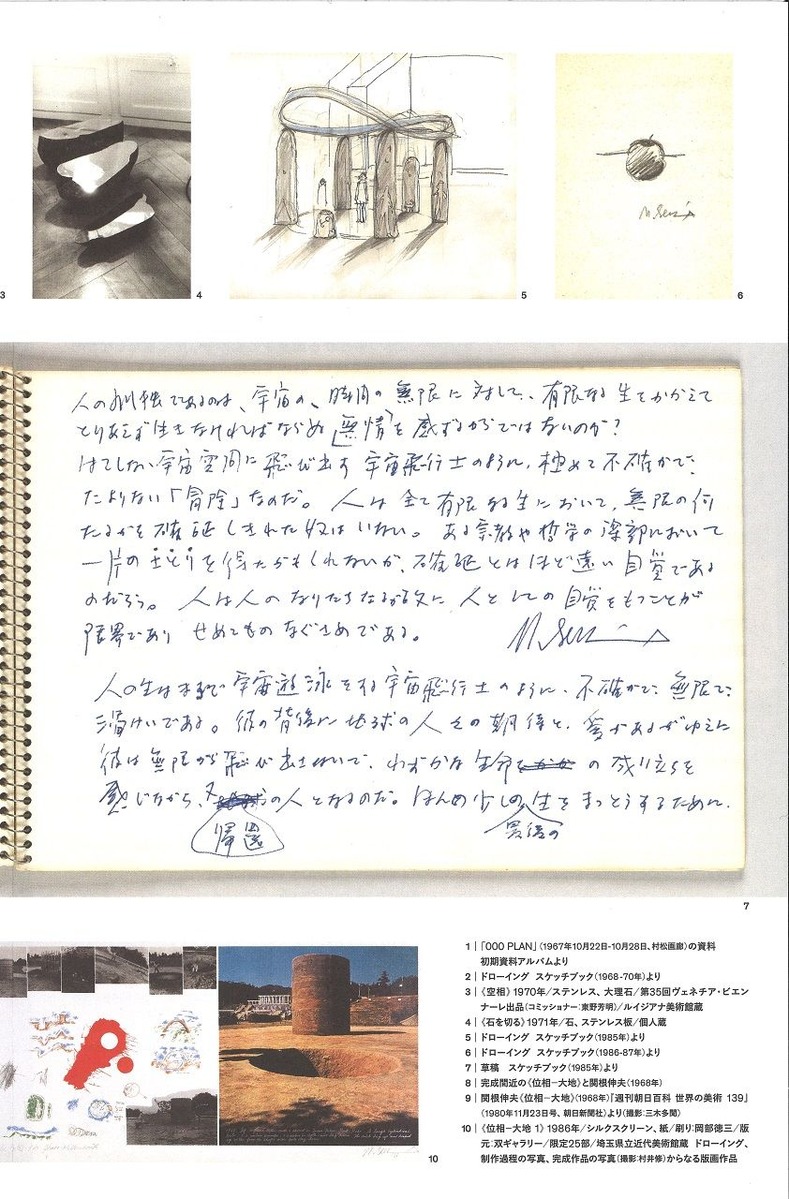 3
4
5
6
M. Seki
人の孤独であるのは、宇宙の、時間の無限に対して、有限なる生をかかえて
とりあえず生きなければならぬ「無情」を感ずるからではないのか?
はてしない宇宙空間に飛び出す宇宙飛行士のように、極めて不確かで、
たよりない「冒険」なのだ。人は全て有限なる生において、無限の何
たるかを確証しきれた奴はいない。ある宗教や哲学の深部において
一片のさとりを得たかもしれないが、確証とはほど遠い自覚である
のだろう。人は人のなりたちなるが故に、人としての自覚をもつことが
限界であり せめてものなぐさめである。
人の生はまるで宇宙遊泳をする宇宙飛行士のように、不確かで、無限で、
滑けいである。彼の背後に地球の人々の期待と、愛があるがゆえに
彼は無限から飛び出さないで、わずかな生命の成り立ちを
感じながら、帰還の人となるのだ。ほんの少しの最後の生をまっとうするために。
7
1|「OOO PLAN」(1967年10月22日-10月28日、村松画廊)の資料
初期資料アルバムより
2|ドローイング スケッチブック(1968-70年)より
3|《空相》1970年/ステンレス、大理石/第35回ヴェネチア・ビエン
ナーレ出品(コミッショナー:東野芳明)/ルイジアナ美術館蔵
4|《石を切る》1971年/石、ステンレス板/個人蔵
5|ドローイング スケッチブック(1985年)より
6|ドローイング スケッチブック(1986-87年)より
7|草稿 スケッチブック(1985年)より
8|完成間近の《位相-大地》と関根伸夫(1968年)
9|関根伸夫《位相-大地》(1968年)『週刊朝日百科 世界の美術 139』
(1980年11月23日号、朝日新聞社)より(撮影:三木多聞)
10|《位相-大地 1》1986年/シルクスクリーン、紙/刷り:岡部徳三/版
元:双ギャラリー/限定25部/埼玉県立近代美術館蔵 ドローイング、
制作過程の写真、完成作品の写真(撮影:村井修)からなる版画作品
10